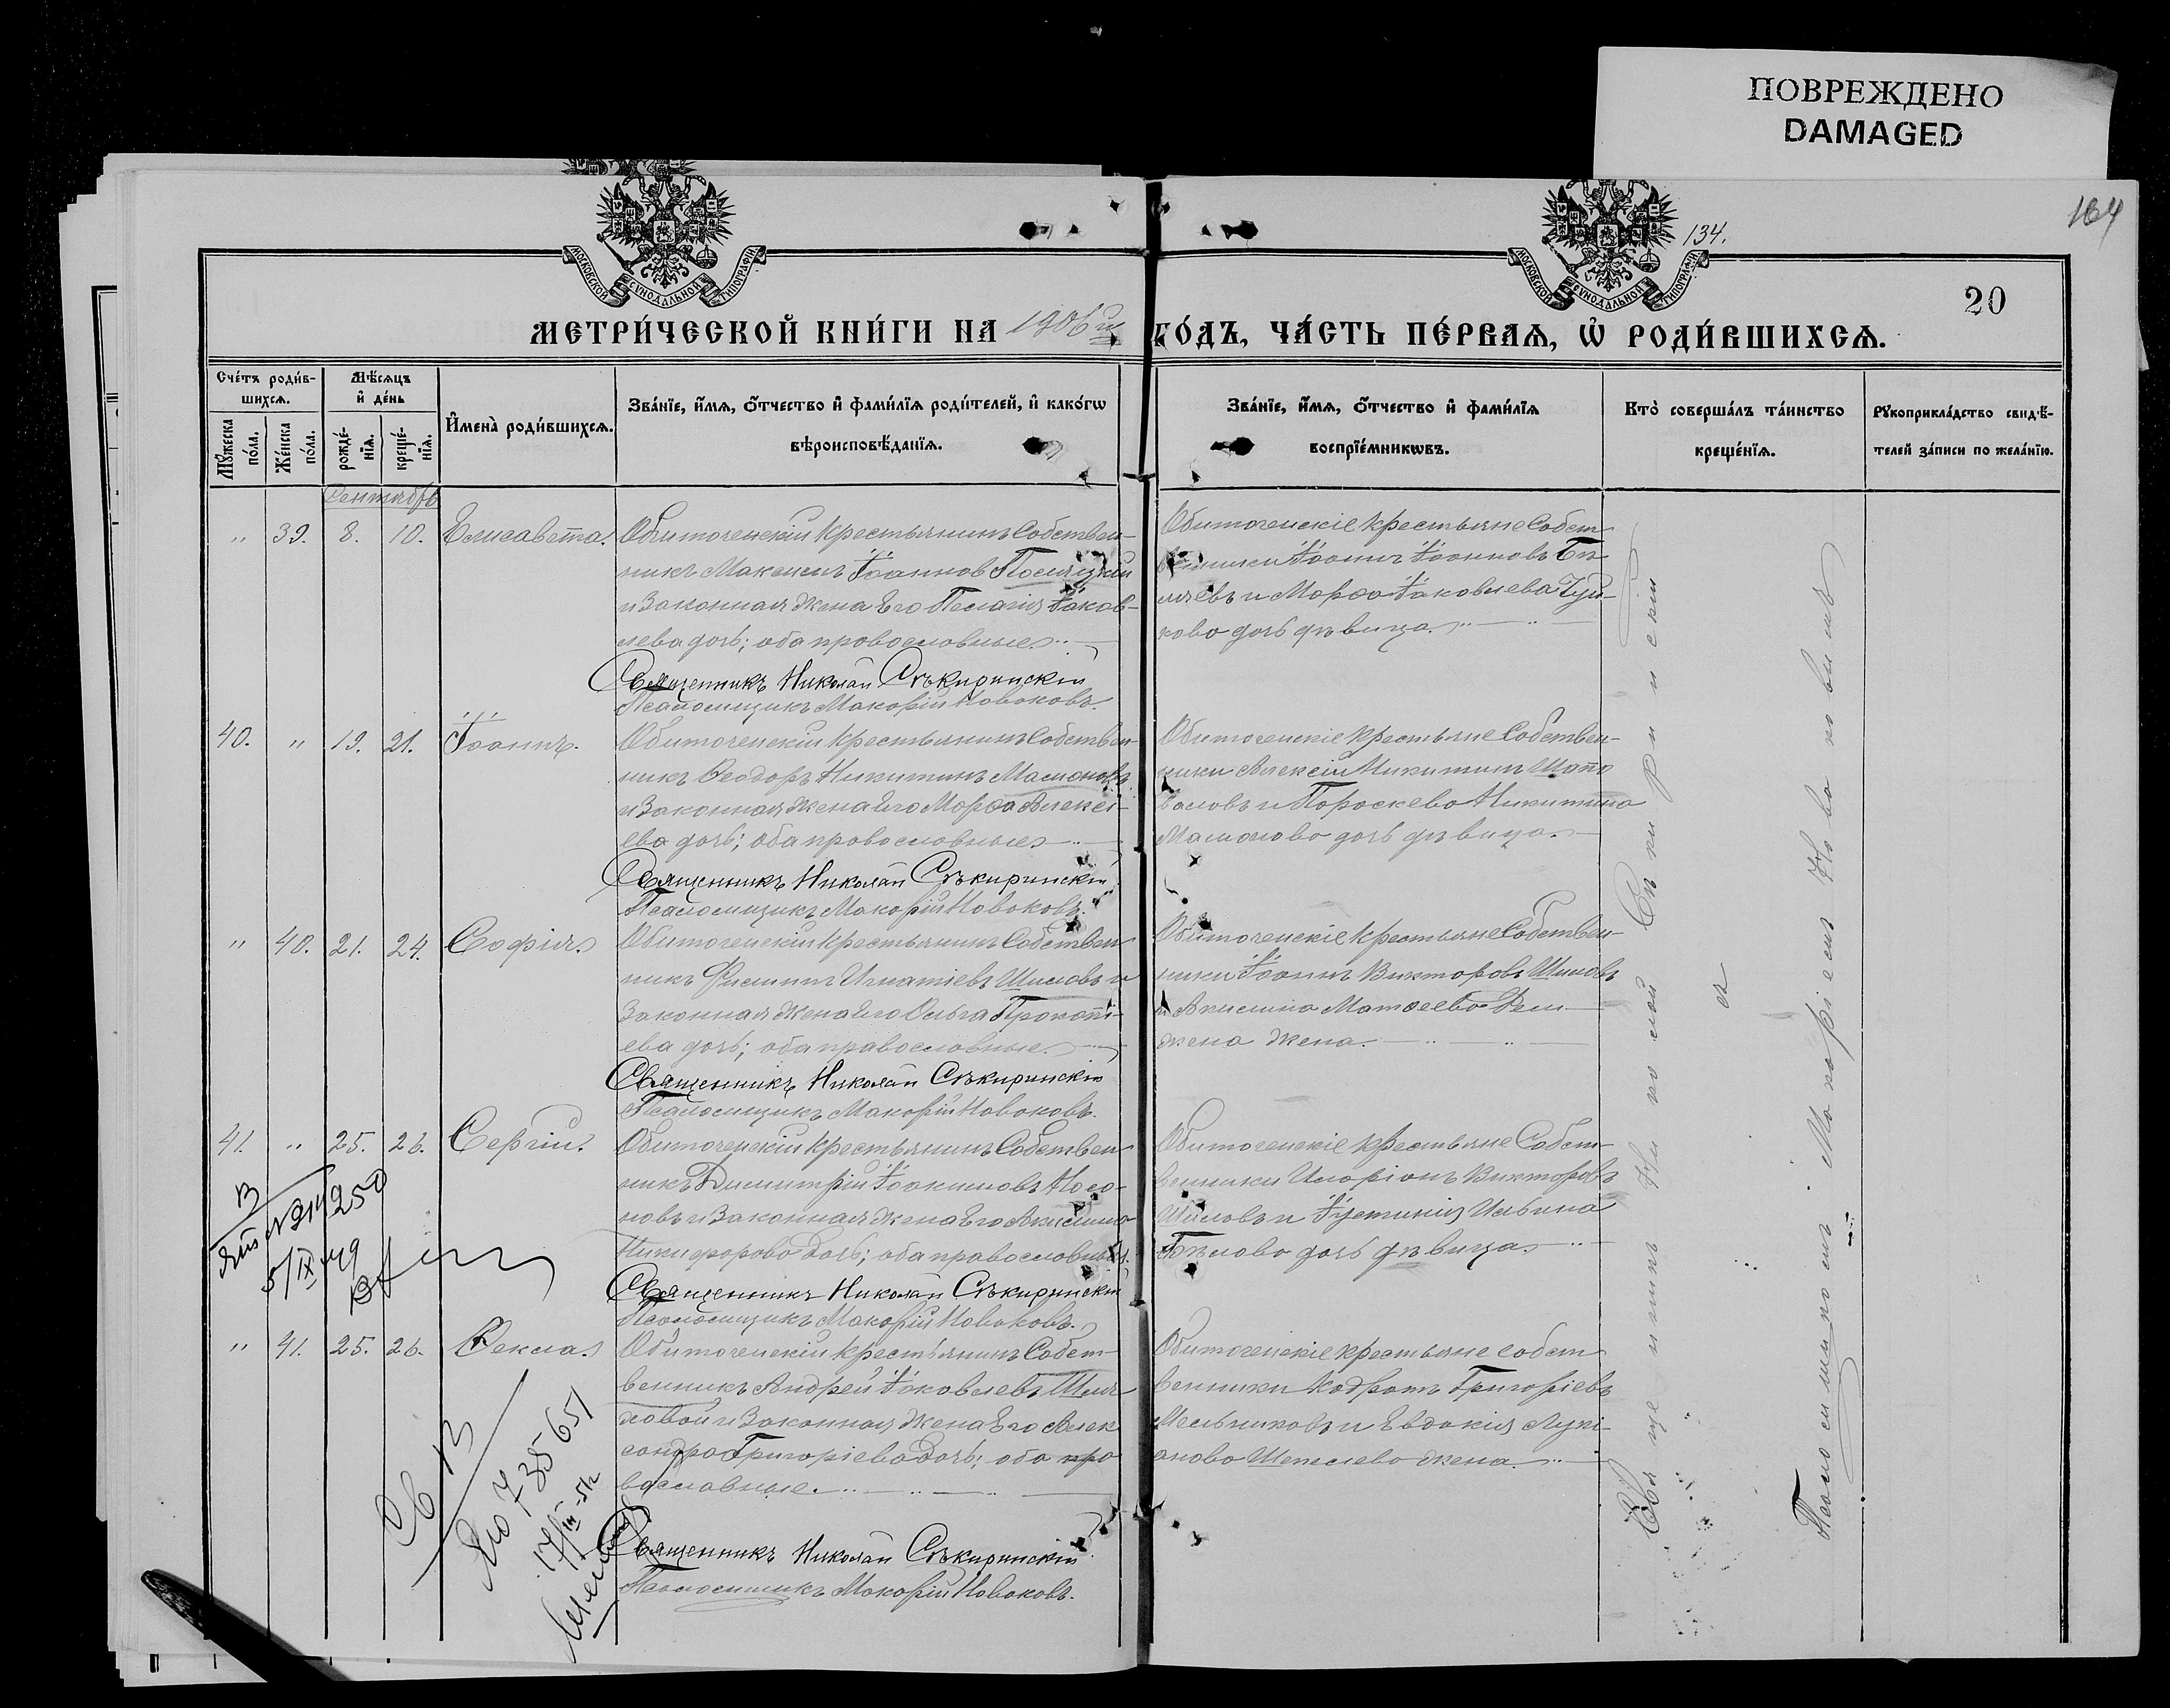 ПОВРЕЖДЕНО
DAMAGED
164
134.
20
МОСКОВСКОЙ СѴНОДАЛЬНОЙ ТИПОГРАФІИ
МОСКОВСКОЙ СѴНОДАЛЬНОЙ ТИПОГРАФІИ
МЕТРИ́ЧЕСКОЙ КНИ́ГИ НА 1906й ГО́ДЪ, ЧА́СТЬ ПЕ́РВАЯ, Ѡ РОДИ́ВШИХСЯ.
Сче́тъ роди́в-
шихся.
Мѣ́сяцъ
и де́нь
Мꙋ́жеска по́ла.
Же́нска по́ла.
рожде́-нїя.
креще́-нїя.
И҆мена̀ роди́вшихся.
Зва́нїе, и҆́мя, ѻ҆́тчество и҆ фами́лїя роди́телей, и҆ како́гѡ
вѣроисповѣ́данїя.
Зва́нїе, и҆́мя, ѻ҆́тчество и҆ фами́лїя
воспрїе́мникѡвъ.
Кто̀ соверша́лъ та́инство
креще́нїя.
Рꙋкоприкла́дство свидѣ́-
телей за́писи по жела́нїю.
Сентябрь
" 39. 8. 10. Елисавета.
Обиточенскій крестьянинъ Собствен-
никъ Максимъ Іоаннов
и Законная жена Его Пелагія Іаков-
лева дочь; оба православные.
Священникъ Николай Сѣкиринскій
Псаломщикъ Макарій Новаковъ.
Обиточенскіе крестьяне Собст
венники Іоаннъ Іоанновъ Бѣ
ляевъ и Марѳа Іаковлева
кова дочь дѣвица.
40. " 19. 21. Іоаннъ.
Обиточенскій крестьянинъ Собствен
никъ Ѳеодоръ Никитинъ Мамоновъ
и Законная жена Его Марѳа Алексі-
ева дочь; оба православные
Священникъ Николай Сѣкиринскій
Псаломщикъ Макарій Новаковъ.
Обиточенскіе крестьяне Собствен-
ники Алексій Никитинъ Шапо
валовъ и Параскева Никитина
Мамонова дочь дѣвица.
" 40. 21. 24. Софія.
Обиточенскій крестьянинъ Собствен
никъ Филиппъ Игнатіевъ Шиловъ и
Законная жена Его Ольга Прокопі-
ева дочь; оба православные.
Священникъ Николай Сѣкиринскій
Псаломщикъ Макарій Новаковъ.
Обиточенскіе крестьяне Собствен-
ники Іоаннъ Викторовъ Шиловъ
и Акилина Матѳеева
жена.
41. " 25. 26. Сергій.
Обиточенскій крестьянинъ Собствен
никъ Димитрій Іоакимовъ Насо-
новъ и Законная жена Его Акилина
Никифорова дочь; оба православные.
Священникъ Николай Сѣкиринскій
Псаломщикъ Макарій Новаковъ.
Обиточенскіе крестьяне Собст-
венники Иларіонъ Викторовъ
Шиловъ и Іустинія Ильина
Бѣлова дочь дѣвица.
" 41. 25. 26. Ѳекла.
Обиточенскій крестьянинъ Собст-
венникъ Андрей Іаковлевъ
и Законная жена Его Алек
сандра Григоріева дочь; оба пра
вославные.
Священникъ Николай Сѣкиринскій
Псаломщикъ Макарій Новаковъ.
Обиточенскіе крестьяне собст
венники Кодратъ Григоріевъ
Мельниковъ и Евдокія Лукі-
анова Шепелева жена.
Священникъ Николай Сѣкиринскій
и
Псаломщикомъ Макаріемъ Новаковымъ
В
5/IX 49
СВ